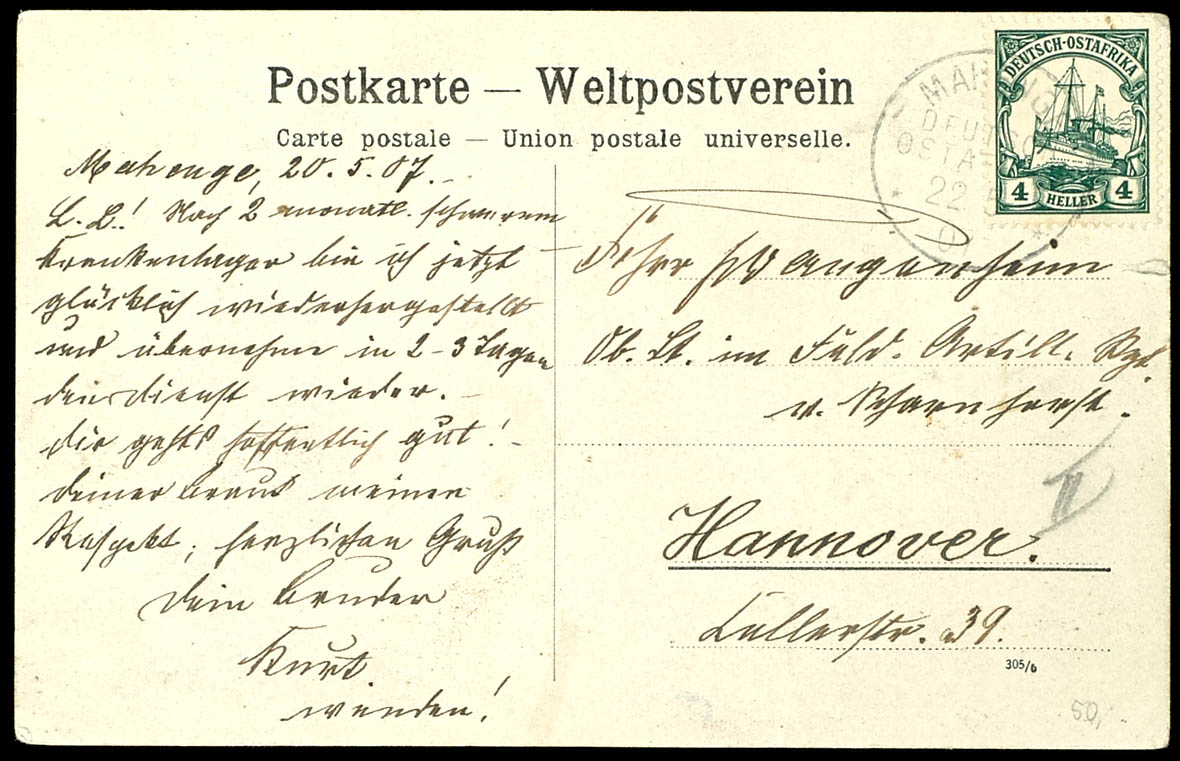 Postkarte — Weltpostverein
Carte postale — Union postale universelle.
DEUTSCH-OSTAFRIKA
4 HELLER 4
DEUTSCH
OSTAFR
22 5
Mahenge, 20.5.07.
L. L.! Nach 2 monatl. schwerem
Krankenlager bin ich jetzt
glücklich wiederhergestellt
und übernehme in 2-3 Tagen
den Dienst wieder.
Dir gehts hoffentlich gut!
Deiner Braut meinen
Respekt, herzlichen Gruß
Dein Bruder
Kurt.
wenden!
Frhr v Wangenheim
Ob. Lt. im Feld. Artill. Rgt.
v. Scharnhorst.
Hannover.
39.
305/6
50,